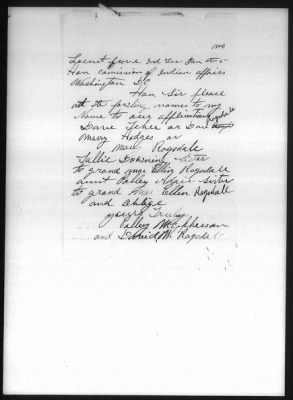 Locust Grove Ind Ter Jan
Hon comission of Indian affairs
Washington D.C.
Hon Sir please
add the following names to my
Name to our application
Dave Tehee or Dave Ragsdale
Mary Hodges or
Mary Ragsdale
Sallie Downing Sister
to grand ma Ellen Ragsdale
aunt Polley Adair Sister
to grand Ellen Ragsdale
and Oblige
yours Truly
Polley McPhearson
and David W. Ragsdale